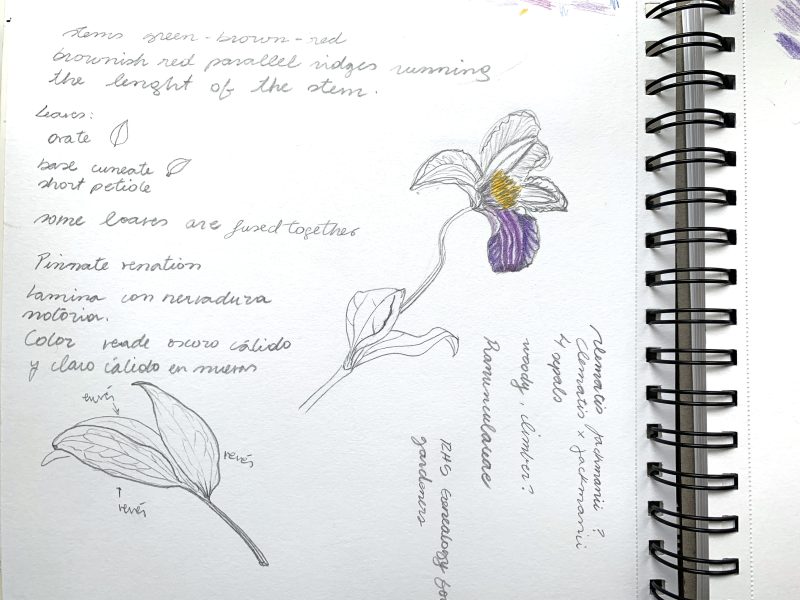 stems green-brown-red
brownish red parallel ridges running
the lenght of the stem.
Leaves:
ovate
base cuneate
short petiole
some leaves are fused together
Pinnate venation
Lamina con nervadura
notoria.
Color verde oscuro cálido
y claro cálido en nuevas
envés
revés
revés
Clematis jackmanii ?
Clematis x jackmanii
4 sepals
woody, climber?
Ranunculaceae
RHS Genealogy for
gardeners